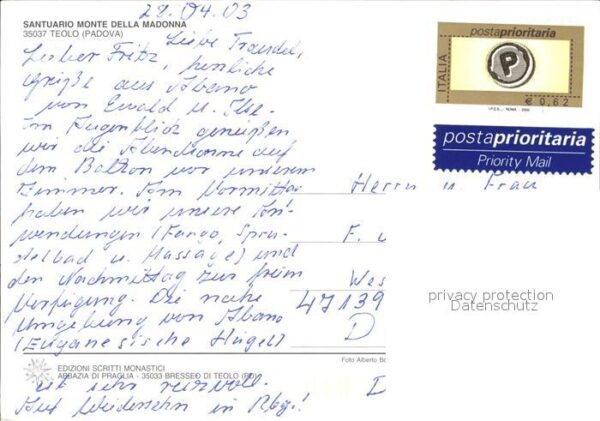 28.04.03
SANTUARIO MONTE DELLA MADONNA
35037 TEOLO (PADOVA)
Liebe Traudel,
Lieber Fritz, herzliche
Grüße aus Abano
von Ewald u. Ilse.
Im Augenblick genießen
wir die Abendsonne auf
dem Balkon vor unserem
Zimmer. Am Vormittag
haben wir unsere An-
wendungen (Fango, Spru-
delbad u. Massage) und
den Nachmittag zur freien
Verfügung. Die nahe
Umgebung von Abano
(Euganesische Hügel)
ist sehr reizvoll.
Auf Wiedersehn in Rbg.!
EDIZIONI SCRITTI MONASTICI
ABBAZIA DI PRAGLIA - 35033 BRESSEO DI TEOLO (PD)
Foto Alberto Bo
postaprioritaria
ITALIA
P
€ 0,62
I.P.Z.S. - ROMA - 2002
postaprioritaria
Priority Mail
Herrn u. Frau
F. u
Wes
47139
D
privacy protection
Datenschutz